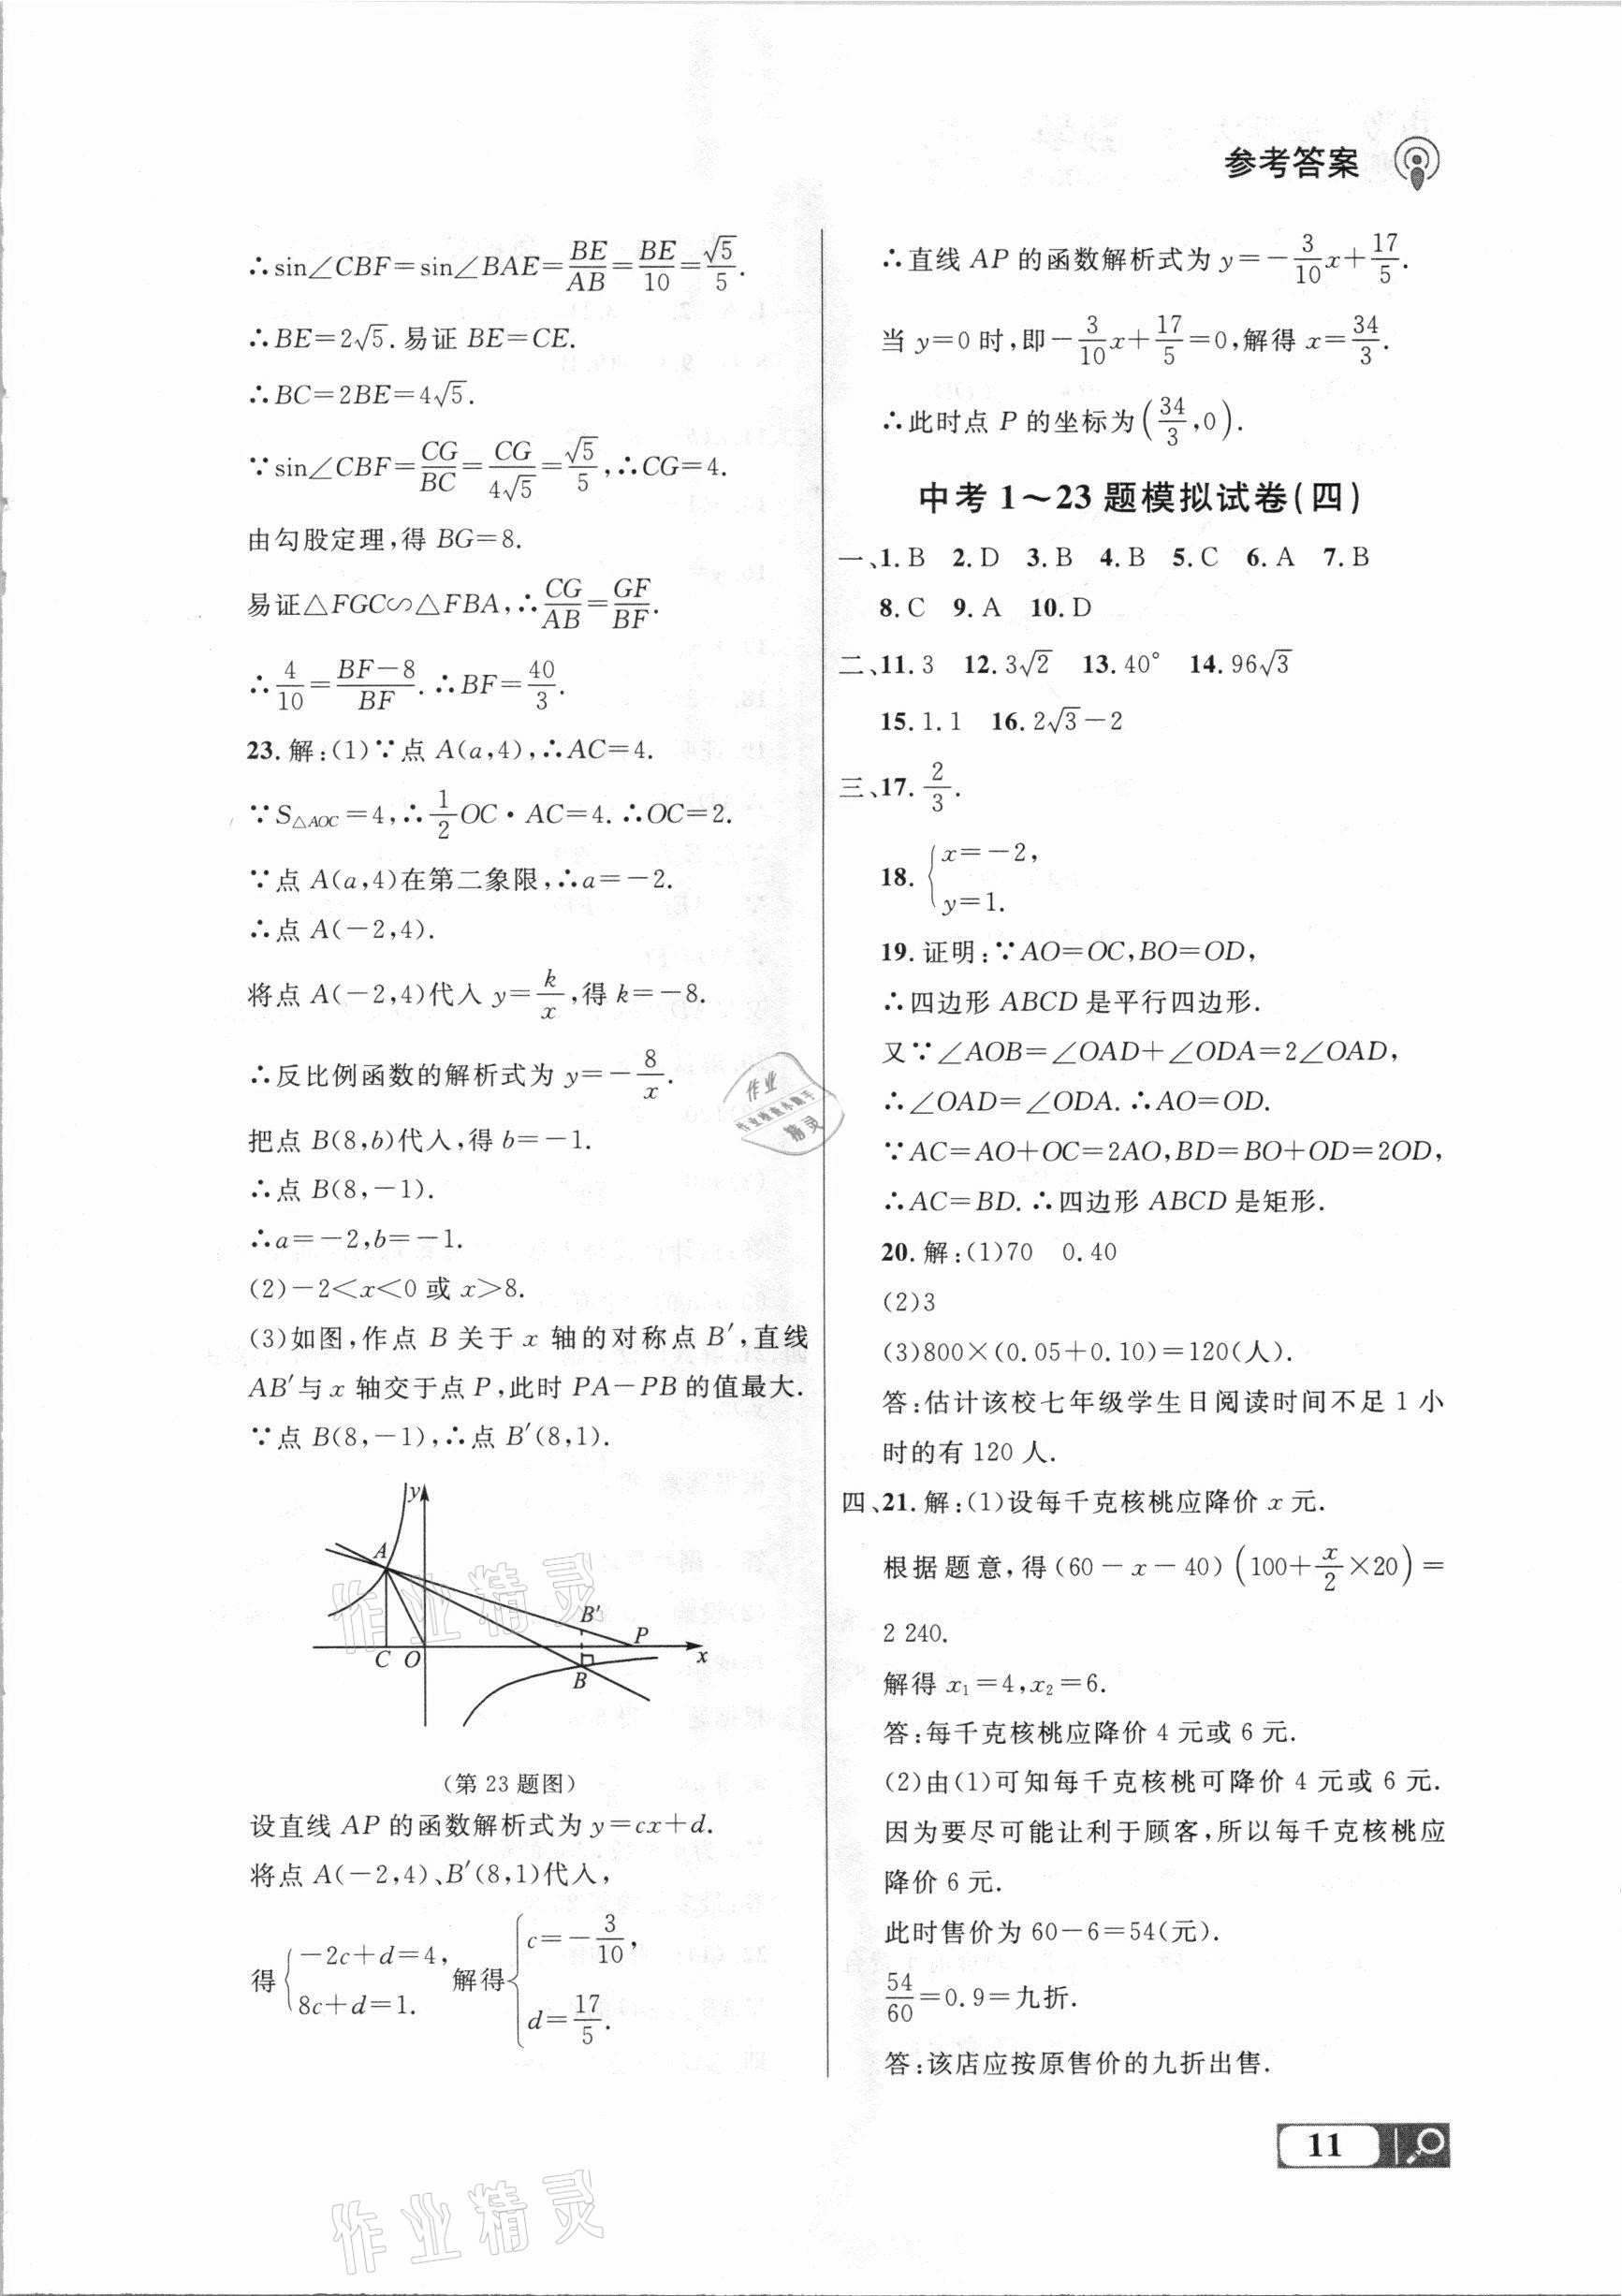 参考答案
∴sin∠CBF=sin∠BAE=BE/AB=BE/10=√5/5.
∴BE=2√5.易证 BE=CE.
∴BC=2BE=4√5.
∵sin∠CBF=CG/BC=CG/4√5=√5/5,∴CG=4.
由勾股定理,得 BG=8.
易证△FGC∽△FBA,∴CG/AB=GF/BF.
∴4/10=(BF-8)/BF.∴BF=40/3.
23.解:(1)∵点 A(a,4),∴AC=4.
∵S△AOC=4,∴1/2 OC·AC=4.∴OC=2.
∵点 A(a,4)在第二象限,∴a=-2.
∴点 A(-2,4).
将点 A(-2,4)代入 y=k/x,得 k=-8.
∴反比例函数的解析式为 y=-8/x.
把点 B(8,b)代入,得 b=-1.
∴点 B(8,-1).
∴a=-2,b=-1.
(2)-2<x<0 或 x>8.
(3)如图,作点 B 关于 x 轴的对称点 B′,直线
AB′与 x 轴交于点 P,此时 PA-PB 的值最大.
∵点 B(8,-1),∴点 B′(8,1).
y
A
B′
P
C O
x
B
(第 23 题图)
设直线 AP 的函数解析式为 y=cx+d.
将点 A(-2,4)、B′(8,1)代入,
得{-2c+d=4, 8c+d=1. 解得{c=-3/10, d=17/5.
∴直线 AP 的函数解析式为 y=-3/10 x+17/5.
当 y=0 时,即-3/10 x+17/5=0,解得 x=34/3.
∴此时点 P 的坐标为(34/3,0).
中考 1～23 题模拟试卷(四)
一、1.B 2.D 3.B 4.B 5.C 6.A 7.B
8.C 9.A 10.D
二、11.3 12.3√2 13.40° 14.96√3
15.1.1 16.2√3-2
三、17.2/3.
18.{x=-2, y=1.
19.证明:∵AO=OC,BO=OD,
∴四边形 ABCD 是平行四边形.
又∵∠AOB=∠OAD+∠ODA=2∠OAD,
∴∠OAD=∠ODA.∴AO=OD.
∵AC=AO+OC=2AO,BD=BO+OD=2OD,
∴AC=BD.∴四边形 ABCD 是矩形.
20.解:(1)70 0.40
(2)3
(3)800×(0.05+0.10)=120(人).
答:估计该校七年级学生日阅读时间不足 1 小
时的有 120 人.
四、21.解:(1)设每千克核桃应降价 x 元.
根据题意,得(60-x-40)(100+x/2×20)=
2 240.
解得 x₁=4,x₂=6.
答:每千克核桃应降价 4 元或 6 元.
(2)由(1)可知每千克核桃可降价 4 元或 6 元.
因为要尽可能让利于顾客,所以每千克核桃应
降价 6 元.
此时售价为 60-6=54(元).
54/60=0.9=九折.
答:该店应按原售价的九折出售.
11
作业精灵
作业精灵